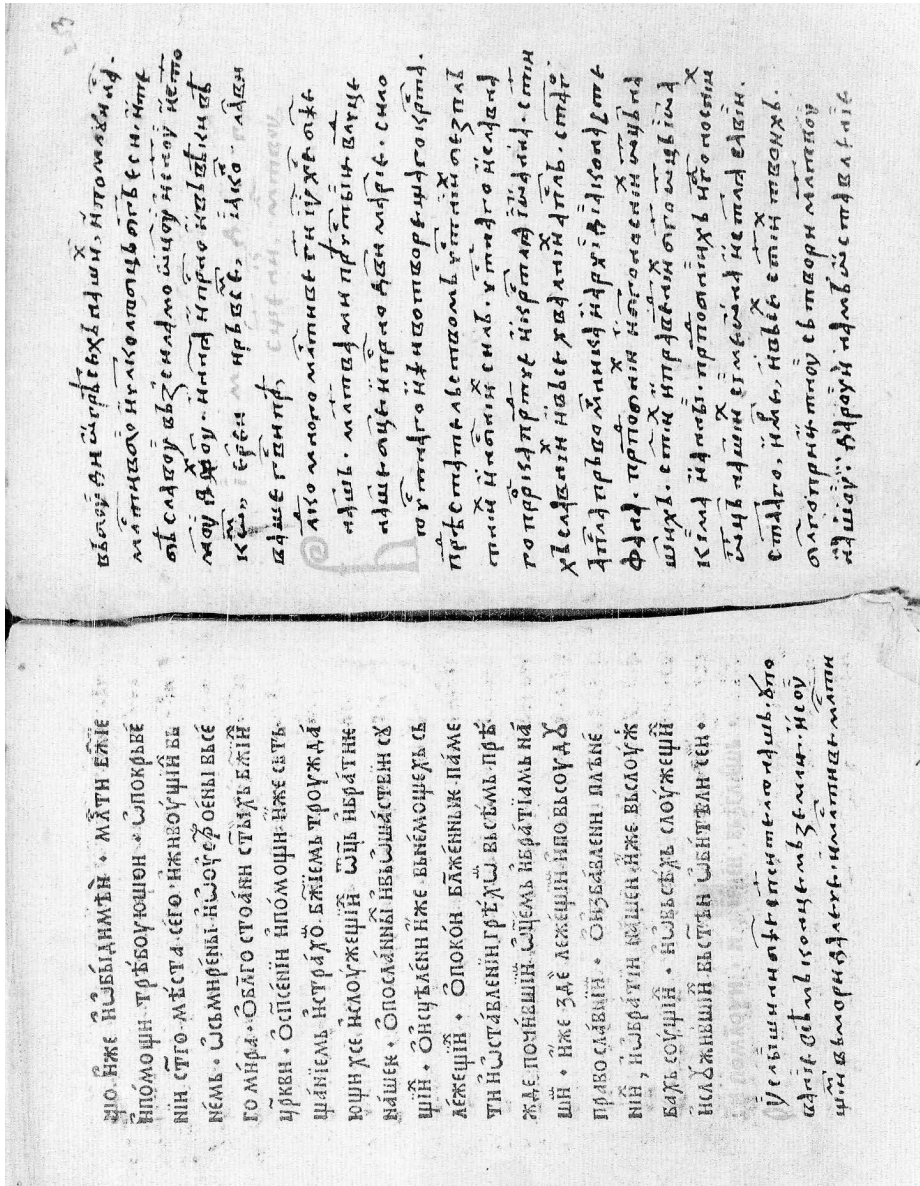 щю · и҆же и҆ѡ҆би́димѣи · мл҃ти бж҃їе
и҆по́мощи трѣбоу́ющюи · ѡ҆покрьве́
нїи ст҃го мѣ́ста сего̀ · и҆живоу́щїи вь
не́мь · ѡ҆сьмире́ны и҆ѡ҆устрое́ны вьсе́
го ми́ра · ѡ҆бл҃го стоа́ни ст҃ыхь бж҃їи
цр҃кви · ѡ҆сп҃се́нїи и҆по́мощи и҆же сьть
ща́нїемь и҆стра́хѡ бж҃їемь троужда́
ющи хсе и҆слоуже́щїи ѡц҃ь и҆бра́тїи
на́шеи · ѡ҆посла́нны и҆вьѡ҆ша́ствїи сꙋ
щїи · ѡ҆и҆сцѣле́нїи и҆же вьне́мощехь сь
ле́жещїи · ѡ҆поко́и бл҃же́нныѥ па́ме
ти и҆ѡ҆ставле́нїи грѣ́хѡ вьсѣ́мь прѣ́
жде почи́вшїи ѡц҃емь и҆бра́тїамь на́
ши · и҆же здѐ леже́щїи и҆повьсоу́дꙋ
правосла́внїи · ѡ҆и҆зба́влени плѣне́
нїи, и҆ѡ҆бра́тїи на́шеи и҆же вьслоу́ж
бахь соу́щїи · и҆ѡ҆вьсѣ́хь слоуже́щїи
и҆слꙋ́жившїи вьст҃ѣи ѡ҆би́тѣли се́и ·
Услыши ны бж҃е сп҃сителю нашь, ѹпо
ванїе всѣмь концемь земли · и҆соу
щїи вьмори далече · и҆мл҃тивь мл҃ти
вь боуди ѡ҆грѣсѣхь нашїи, и҆помилуи на ·
мл҃тивь бо и҆чл҃колюбць б҃ь еси · и҆те
бѣ славоу вьзсилаемо ѡц҃оу и҆сн҃оу и҆ст҃о
моу дх҃оу · и҆ны҃нꙗ и҆прно и҆вьвѣкы вѣ
ваше г҃ви пр,
лко много мл҃тиве г҃и іу҃ хе б҃же
нашь · мл҃твами прч҃тыѥ влц҃це
наше бц҃е и҆прно дв҃и марїе · сило
ю чт҃наго и҆животворещаго крт҃а ·
прѣдстателствомь чт҃нїи небезпль
тнїи нбснїи силь · чт҃наго и҆славна
го пррⷪка прⷣтче и҆крт҃ла їѡ҃анна · ст҃їи
хь славнїи и҆все хвалнїи апл҃ь · ст҃го
апл҃а прьвомч҃нка и҆архидїакона сте
фана · прпⷣобнїи и҆бгоноснїи ѡц҃ь на
шихь · ст҃їи и҆праведнїи бгоѡц҃ь іѡа
кима и҆анны · прпⷣобнїихь и҆бгоноснїи
ѡц҃ь нашїи сѵмеѡна и҆ст҃ла савїи ·
ст҃аго, и҆мⷬкь, и҆всѣ ст҃їи твоихь ·
блгоприꙗтноу сьтвори мл҃твоу
нашоу · дароуи намь ѡставленїе